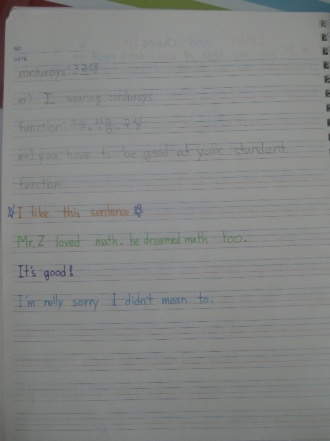 NO
DATE
corduroys: 코르덴
ex) I wearing corduroys
function: 기능, 작용, 구실
ex) you have to be good at your student
function
☆I like this sentence☆
Mr. Z loved math. he dreamed math too.
It's good!
I'm relly sorry I didn't mean to.